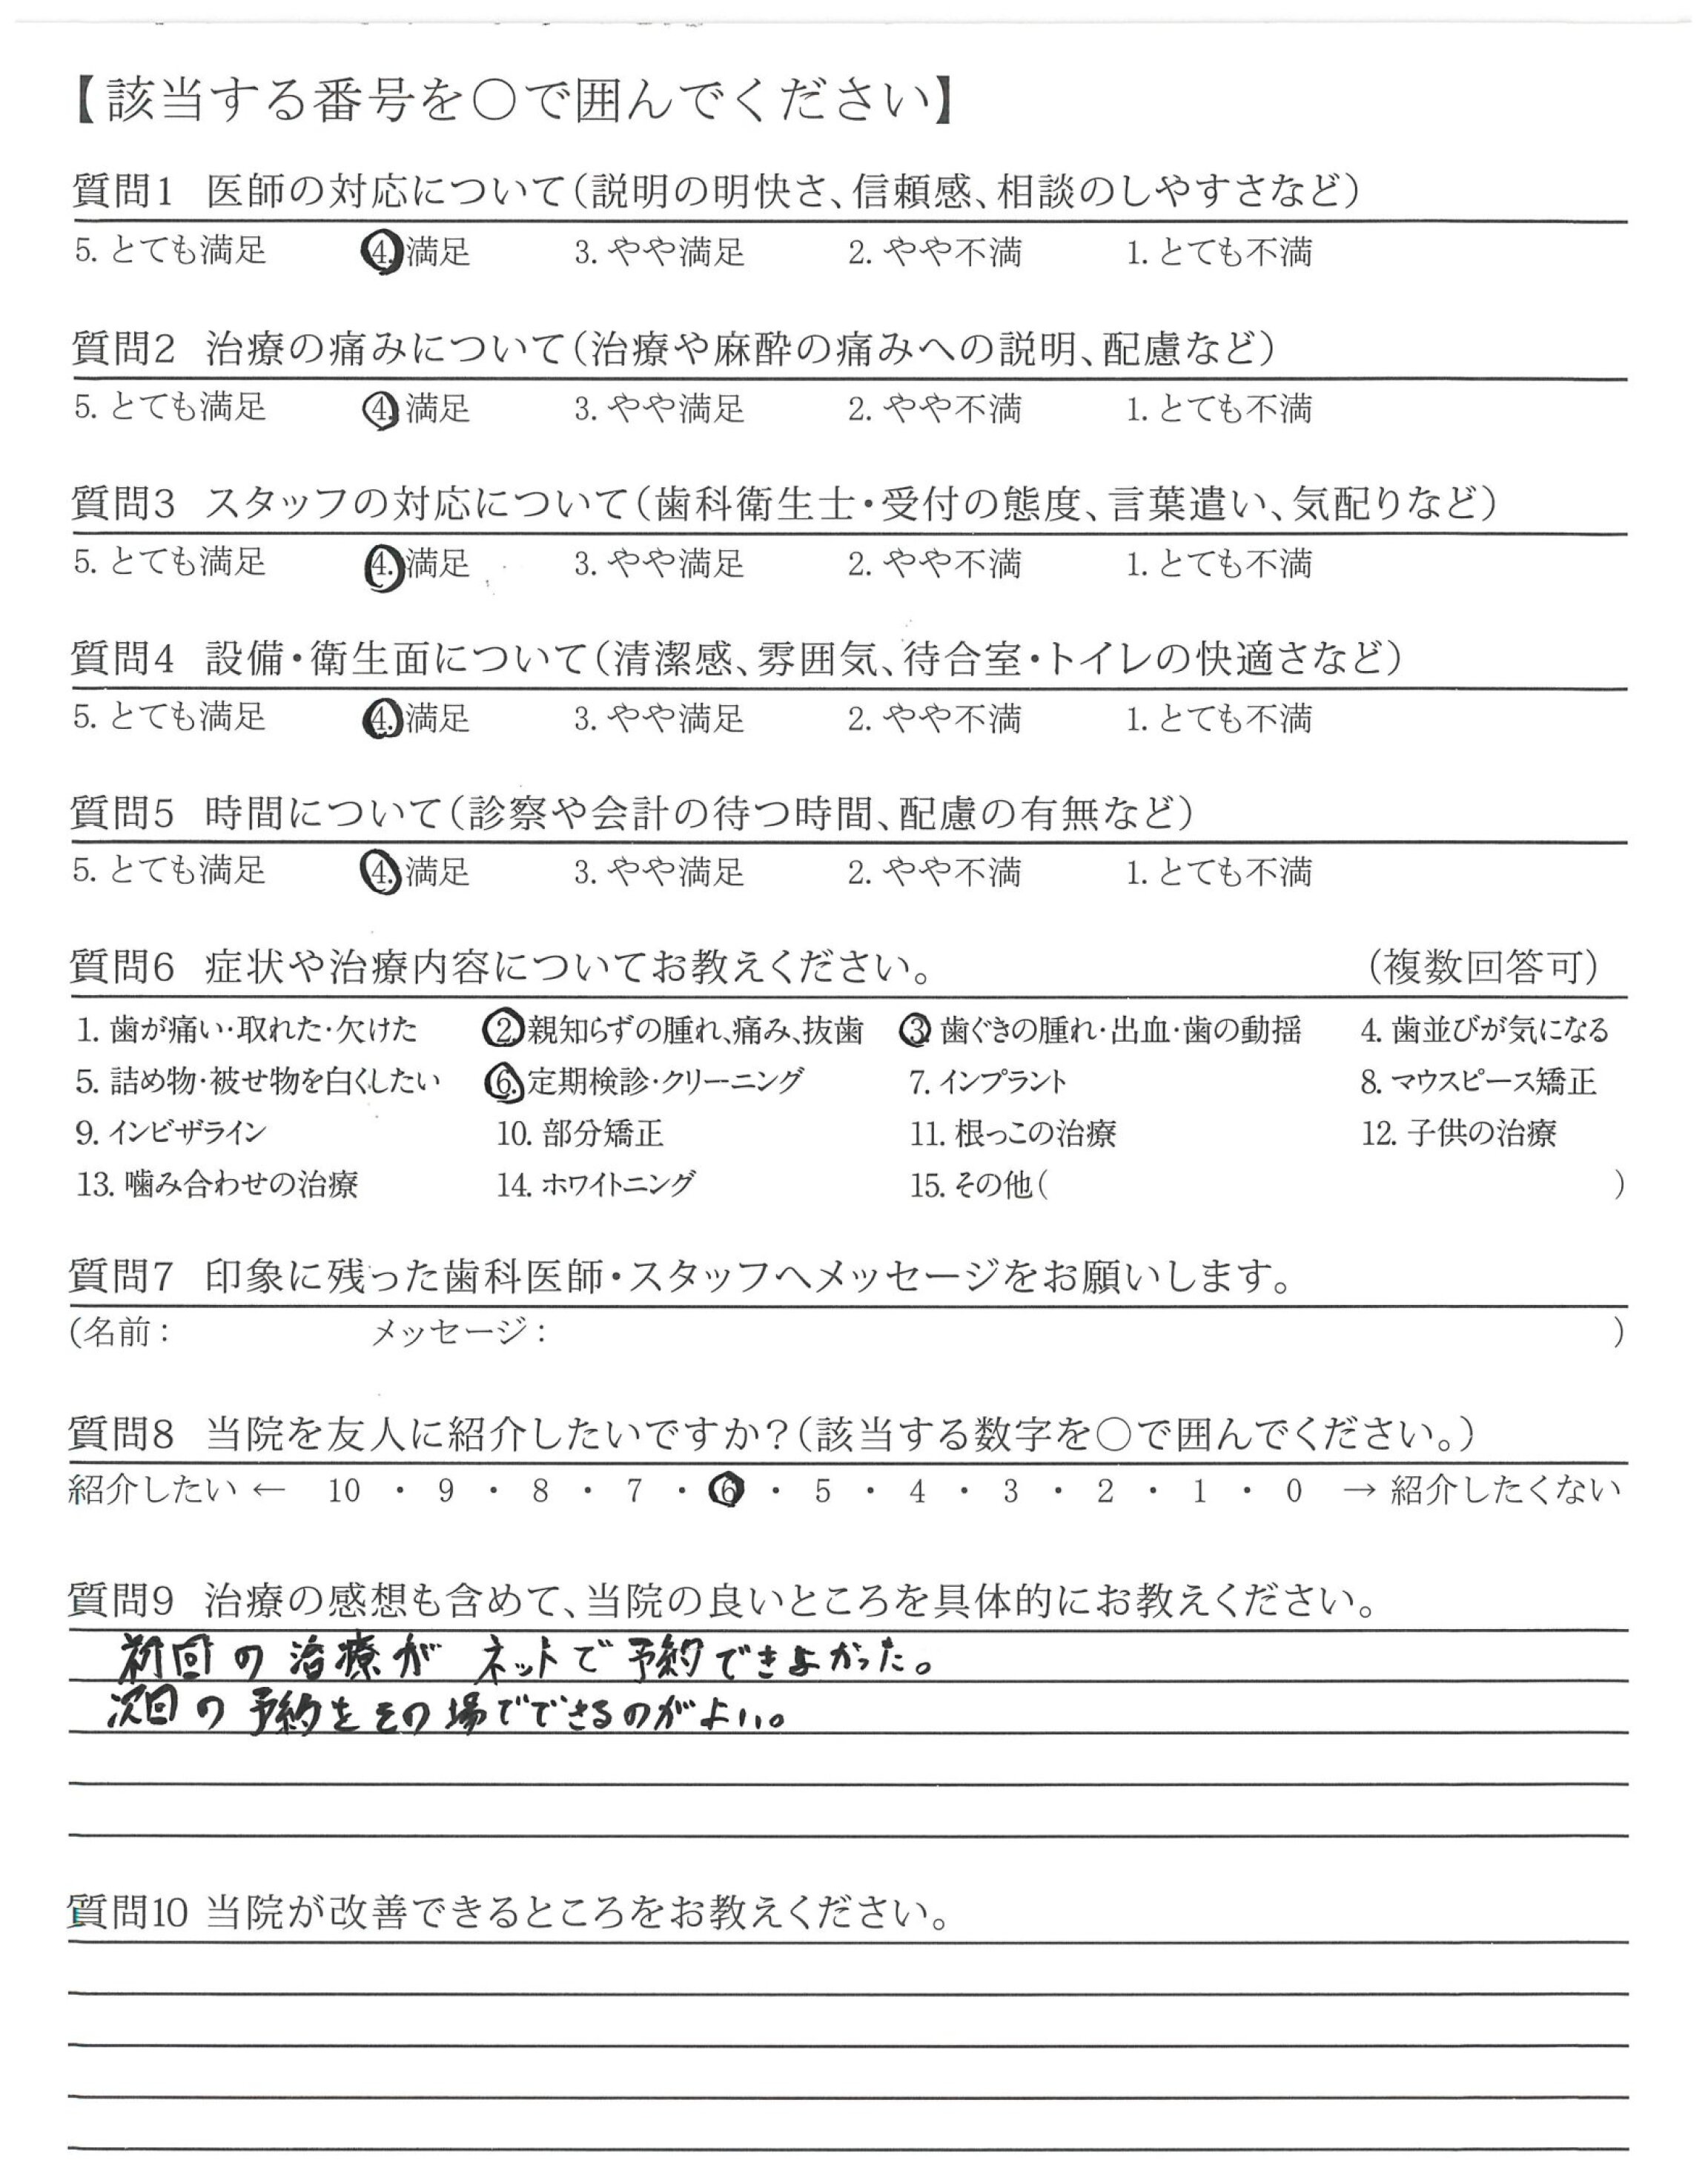 【該当する番号を○で囲んでください】
質問1 医師の対応について(説明の明快さ、信頼感、相談のしやすさなど)
5. とても満足 4. 満足 3. やや満足 2. やや不満 1. とても不満
質問2 治療の痛みについて(治療や麻酔の痛みへの説明、配慮など)
5. とても満足 4. 満足 3. やや満足 2. やや不満 1. とても不満
質問3 スタッフの対応について(歯科衛生士・受付の態度、言葉遣い、気配りなど)
5. とても満足 4. 満足 3. やや満足 2. やや不満 1. とても不満
質問4 設備・衛生面について(清潔感、雰囲気、待合室・トイレの快適さなど)
5. とても満足 4. 満足 3. やや満足 2. やや不満 1. とても不満
質問5 時間について(診察や会計の待つ時間、配慮の有無など)
5. とても満足 4. 満足 3. やや満足 2. やや不満 1. とても不満
質問6 症状や治療内容についてお教えください。 (複数回答可)
1. 歯が痛い・取れた・欠けた 2. 親知らずの腫れ、痛み、抜歯 3. 歯ぐきの腫れ・出血・歯の動揺 4. 歯並びが気になる
5. 詰め物・被せ物を白くしたい 6. 定期検診・クリーニング 7. インプラント 8. マウスピース矯正
9. インビザライン 10. 部分矯正 11. 根っこの治療 12. 子供の治療
13. 噛み合わせの治療 14. ホワイトニング 15. その他( )
質問7 印象に残った歯科医師・スタッフへメッセージをお願いします。
(名前: メッセージ: )
質問8 当院を友人に紹介したいですか?(該当する数字を○で囲んでください。)
紹介したい ← 10 ・ 9 ・ 8 ・ 7 ・ 6 ・ 5 ・ 4 ・ 3 ・ 2 ・ 1 ・ 0 → 紹介したくない
質問9 治療の感想も含めて、当院の良いところを具体的にお教えください。
初回の治療がネットで予約できよかった。
次回の予約をその場でできるのがよい。
質問10 当院が改善できるところをお教えください。